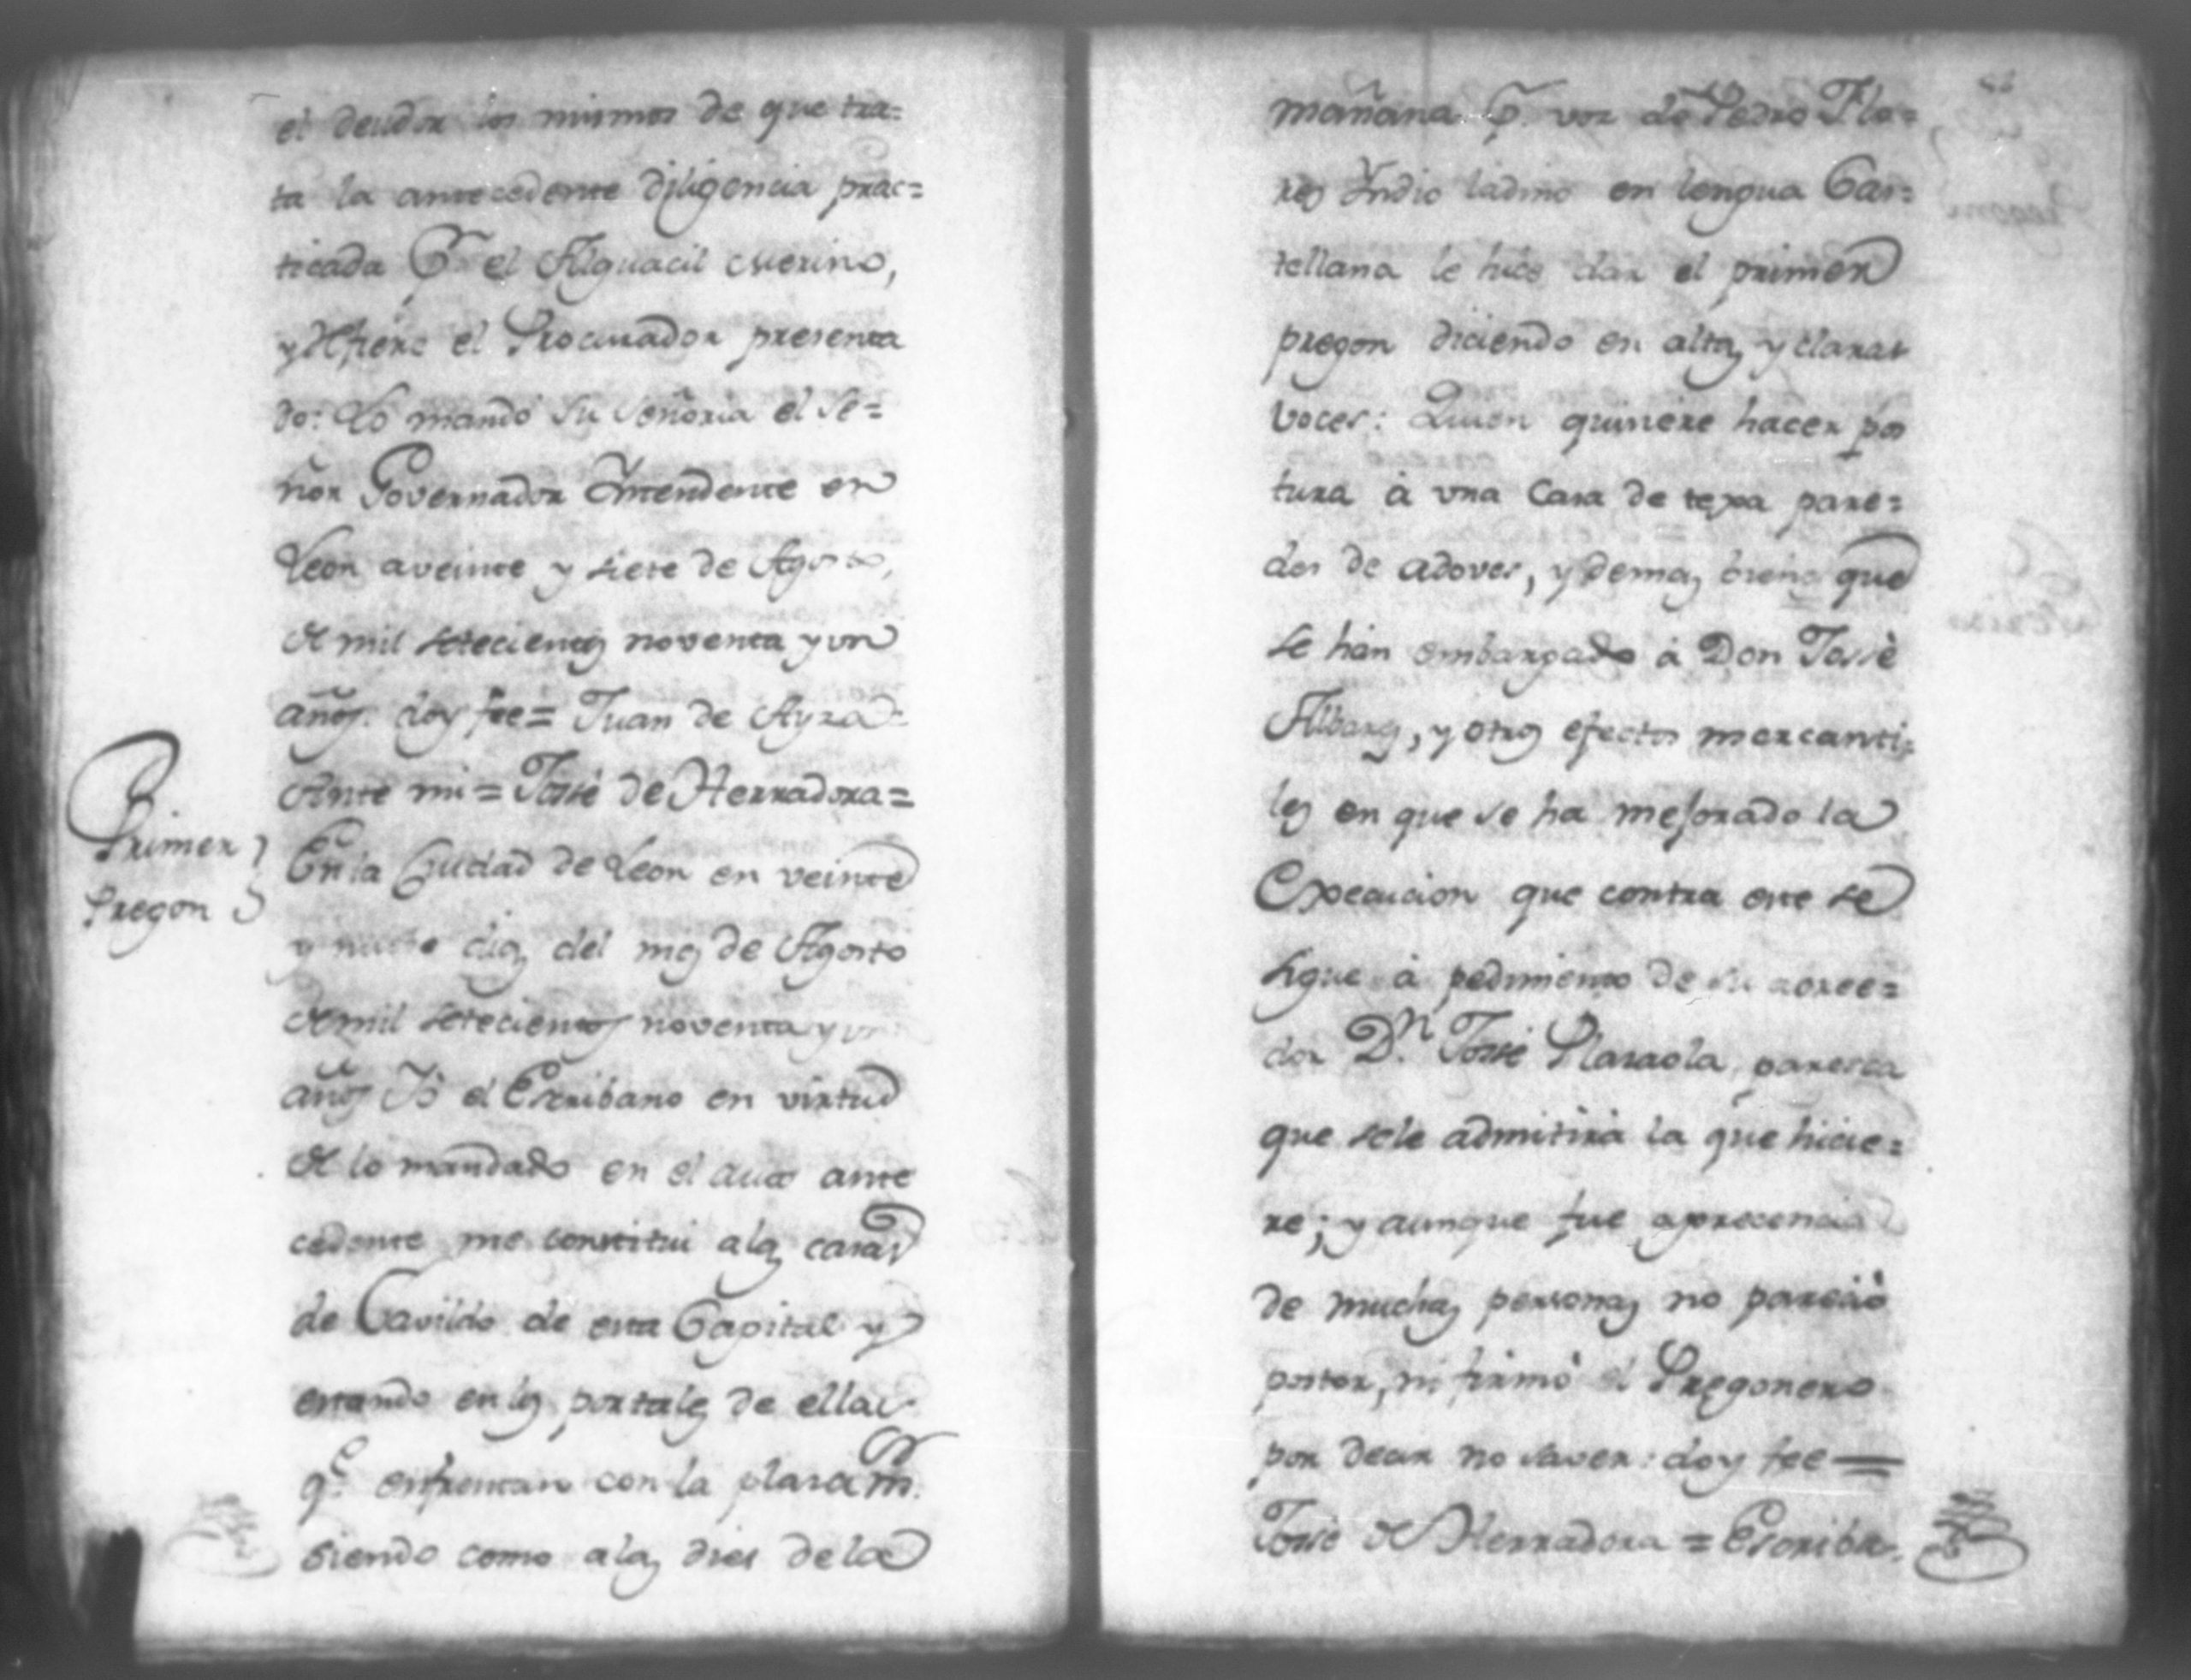 el deudor los mismos de que tra=
ta la antecedente diligencia prac=
ticada Pr. el Alguacil Merino,
y refiere el Procurador presenta
do: Lo mandó su señoria el Se=
ñor Governador Yntendente en
Leon a veinte y siete de Agosto,
de mil setecientos noventa y un
años. doy fee = Juan de Ayza=
Ante mi = José de Herradora =
Primer
Pregon
En la Ciudad de Leon en veinte
y nueve dias del mes de Agosto
de mil setecientos noventa y un
años Yo el Escribano en virtud
de lo mandado en el auto ante
cedente me constitui a las casas
de Cavildo de esta Capital y
estando en los portales de ellas
qe. enfrentan con la plaza mr.
siendo como a las dies de la
mañana Pr. voz de Pedro Flo=
res Yndio ladino en lengua Cas=
tellana le hice dar el primer
pregon diciendo en altas, y claras
voces: Quien quisiere hacer pos
tura á una Casa de texa pare=
des de adoves, y demas bienes que
se han embargado á Don Jossè
Albares, y otros efectos mercanti=
les en que se ha mejorado la
Execucion que contra este se
sigue á pedimento de su acree=
dor Dn. José Plazaola, paresca
que sele admitirá la que hicie=
re; y aunque fue apresencia
de muchas personas no pareció
postor, ni firmó el Pregonero
por decir no saver: doy fee =
José de Herradora = Escriba.